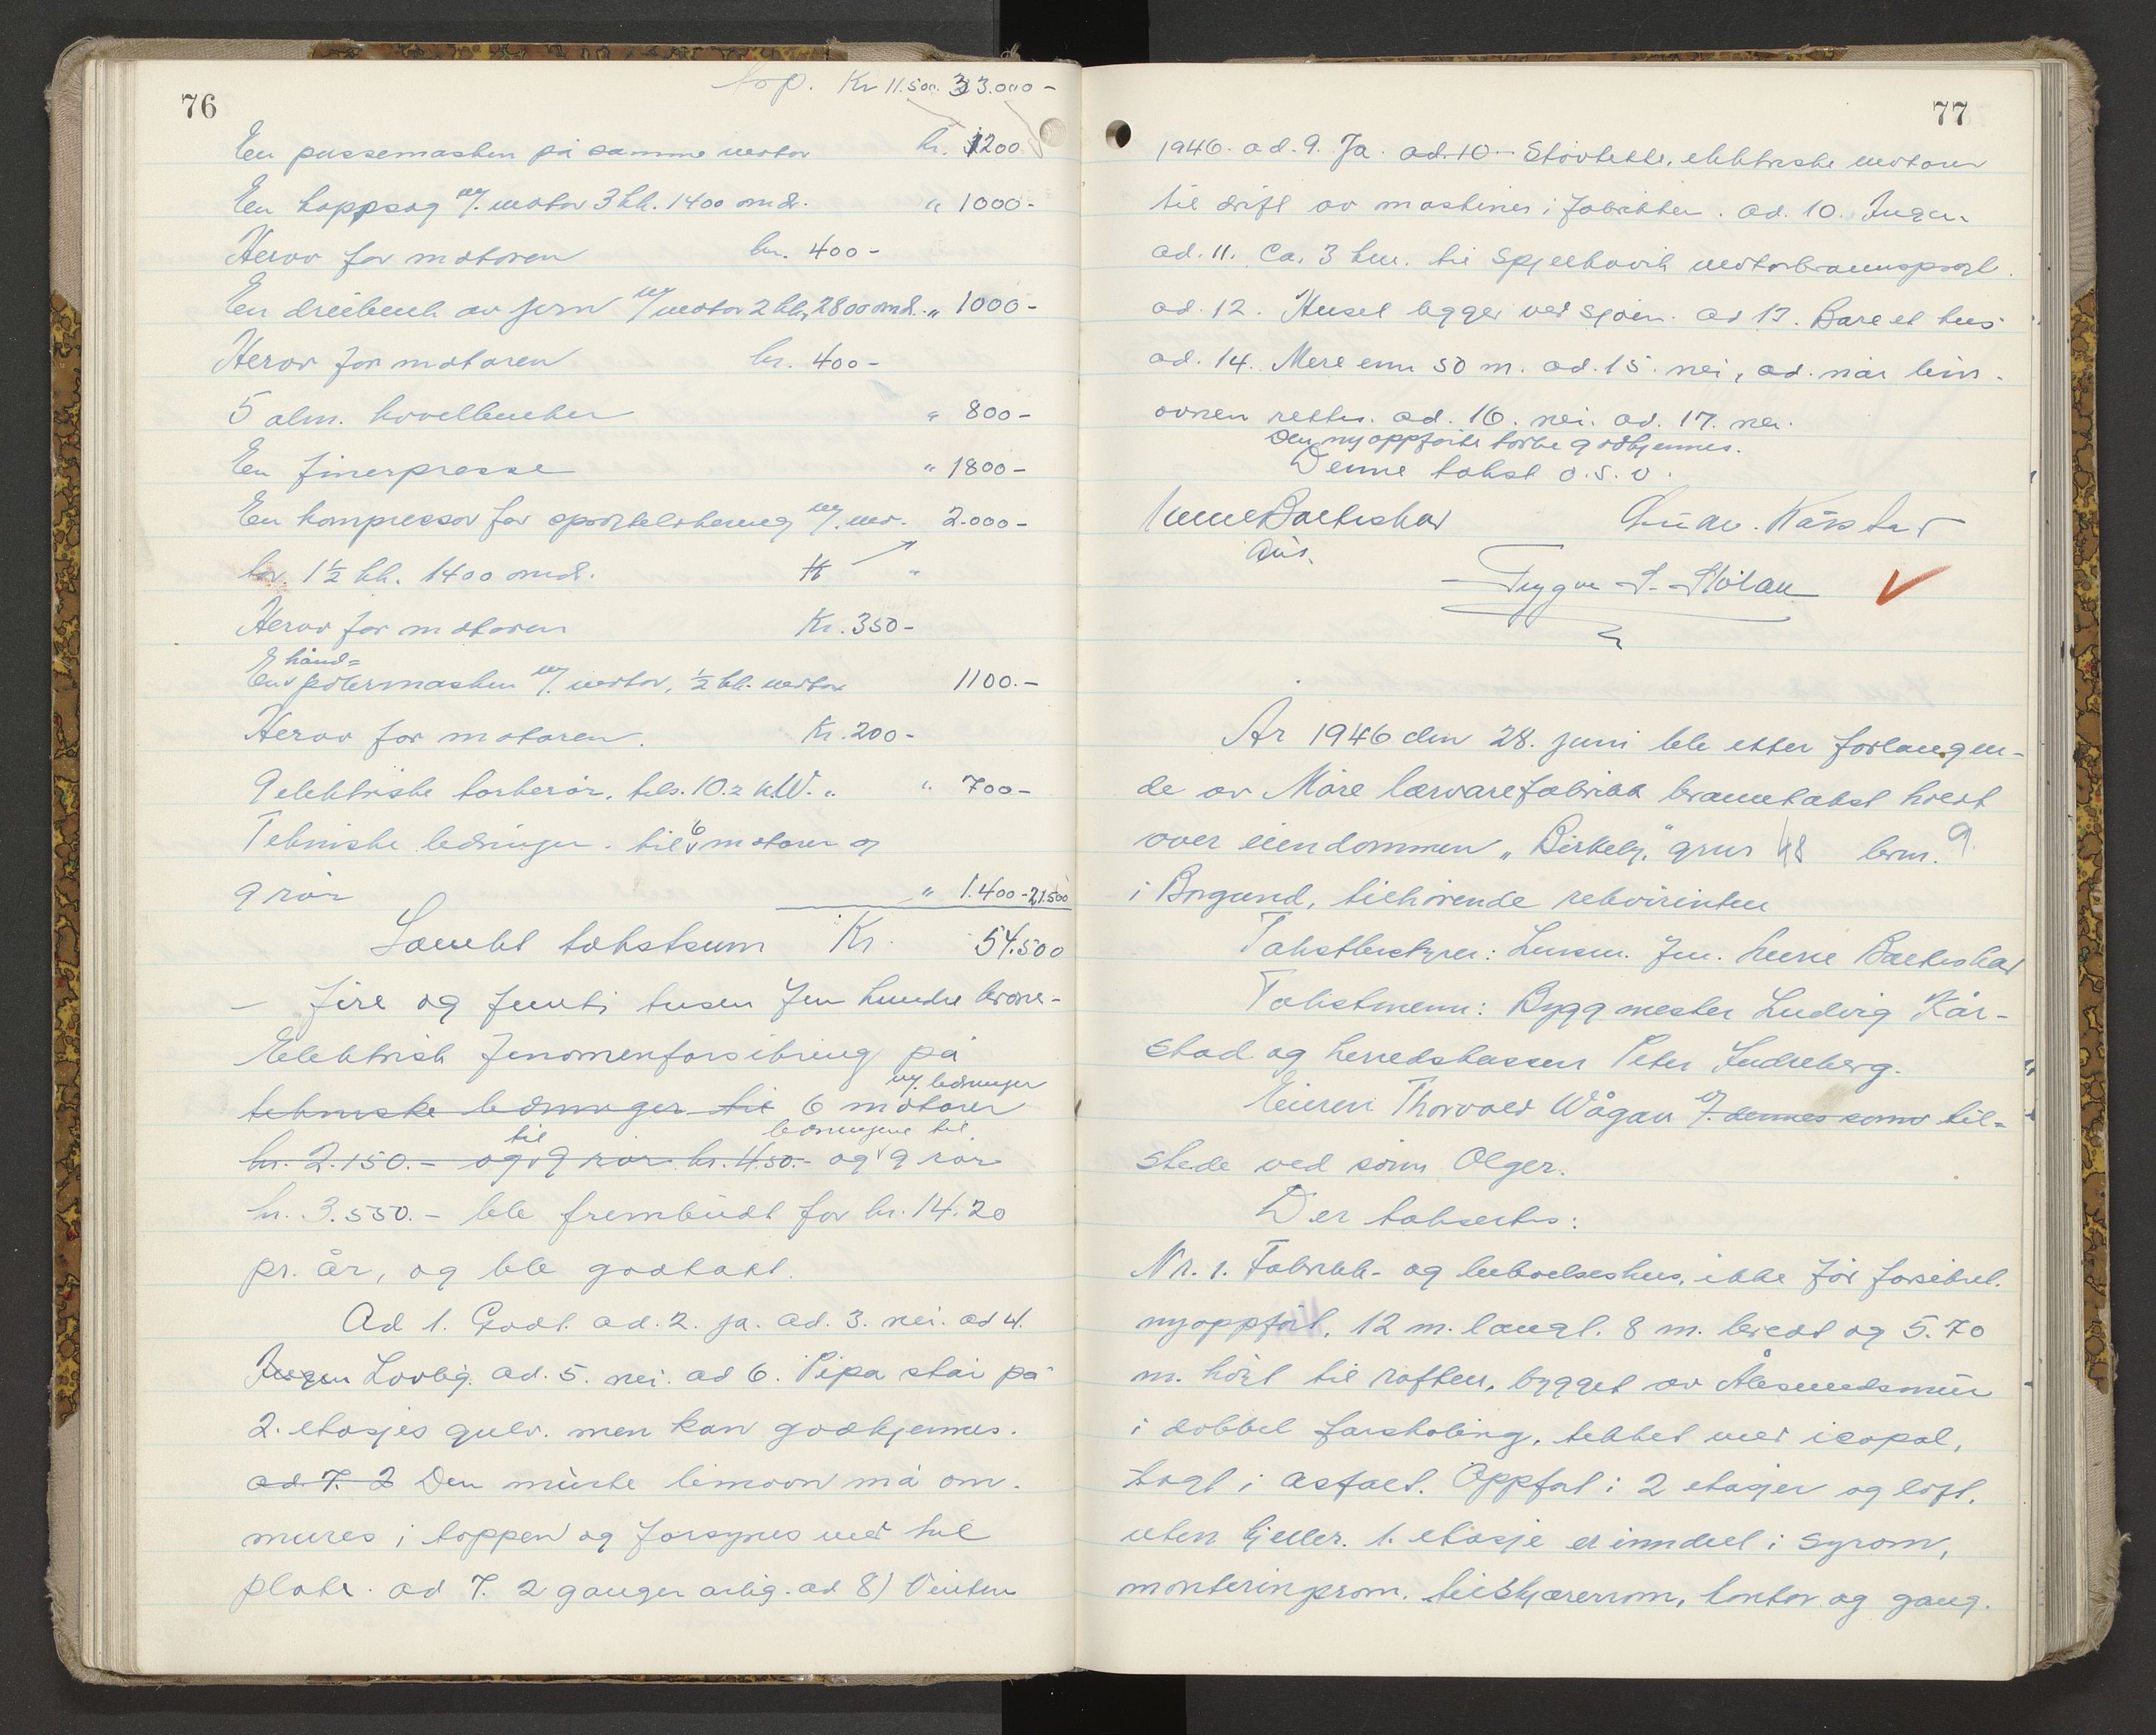 76
Kr 11.500. 33.000-
En pussemaskin på samme motor kr. 1200
En kappsag m/. motor 3 hk. 1400 omdr. " 1000-
Herav for motoren kr. 400-
En dreibenk av jern m/ motor 2 hk, 2800 omdr. " 1000-
Herav for motoren kr. 400-
5 alm. hovelbenker " 800-
En finerpresse " 1800-
En kompressor for sprøitelakering m/. mo- 2.000-
tor 1½ hk. 1400 omdr. "
Herav for motoren Kr. 350-
En hånd= polermaskin m/. motor, ½ hk. motor 1100.-
Herav for motoren. Kr. 200-
9 elektriske tørkerør, tils. 10.2 k.W. " " 700-
Tekniske ledninger. til 6 motorer og
9 rør " 1.400- 21.500
Samlet takstsum Kr. 54.500
- fire og femti tusen fem hundre kroner-
Elektrisk fenomenforsikring på
tekniske ledninger til 6 motorer m/. ledninger
kr. 2.150.- og til 9 rør kr. 450.- og ledningene til 9 rør
kr. 3.550.- ble frembudt for kr. 14.20
pr. år, og ble godtatt.
Ad 1. Godt. ad. 2. ja. ad. 3. nei. ad 4.
Ingen Lovlig. ad. 5. nei. ad 6. Pipa står på
2. etasjes gulv. men kan godkjennes.
ad. 7. 2 Den murte limovn må om-
mures i toppen og forsynes med hel
plate. ad 7. 2 ganger årlig. ad 8) Vinteren
77
1946. ad. 9. Ja. ad. 10. Støvtette, elektriske motorer
til drift av maskiner i fabrikken. ad. 10. Ingen
ad. 11. Ca. 3 km. til Spjelkavik motorbrannsprøit.
ad. 12. Huset ligger ved sjøen. ad 13. Bare et hus
ad. 14. Mere enn 50 m. ad. 15. nei, ad. når lim-
ovnen rettes. ad. 16. nei. ad. 17. nei.
Den nyoppførte tørke godkjennes.
Denne takst o.s.v.
Kårstad
Trygve
År 1946 den 28. juni ble etter forlangen-
de av Møre lærvarefabrikk branntakst holdt
over eiendommen "Birkely," gnr 48 brn. 9.
i Borgund, tilhørende rekvirenten
Takstbestyrer: Lensm. fm. Bakteskar
Takstmenn: Byggmester Ludvig Kår-
stad og herredskasserer Peter Indreberg.
Eieren Thorvald Vågan og dennes sønn til-
stede ved sønn Olger.
Der taksertes:
Nr. 1. Fabrikk- og beboelseshus, ikke før forsikret.
nyoppført, 12 m. langt. 8 m. bredt og 5.70
m. høit til raften, bygget av Ålesundsmur
i dobbel forskaling, tekket med icopal,
lagt i asfalt. Oppført i 2 etasjer og loft.
uten kjeller. 1. etasje er inndelt i syrom,
monteringsrom, tilskjærerrom, kontor og gang.